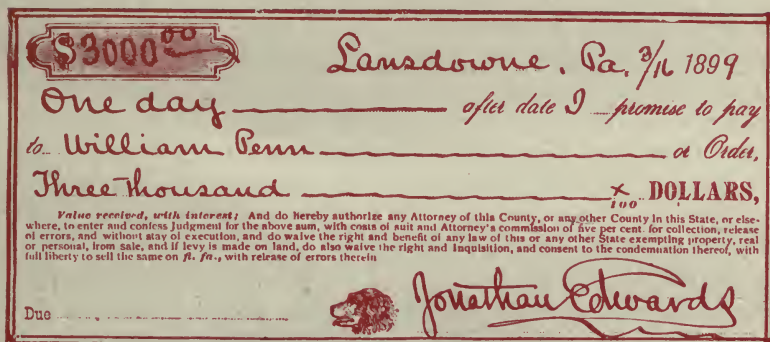 $3000 00
Lansdowne, Pa. 3/16 1899
One day after date I promise to pay
to William Penn or Order,
Three thousand x/100 DOLLARS,
Value received, with interest; And do hereby authorize any Attorney of this County, or any other County in this State, or else-
where, to enter and confess Judgment for the above sum, with costs of suit and Attorney's commission of five per cent. for collection, release
of errors, and without stay of execution, and do waive the right and benefit of any law of this or any other State exempting property, real
or personal, from sale, and if levy is made on land, do also waive the right and Inquisition, and consent to the condemnation thereof, with
full liberty to sell the same on fi. fa., with release of errors therein
Jonathan Edwards
Due